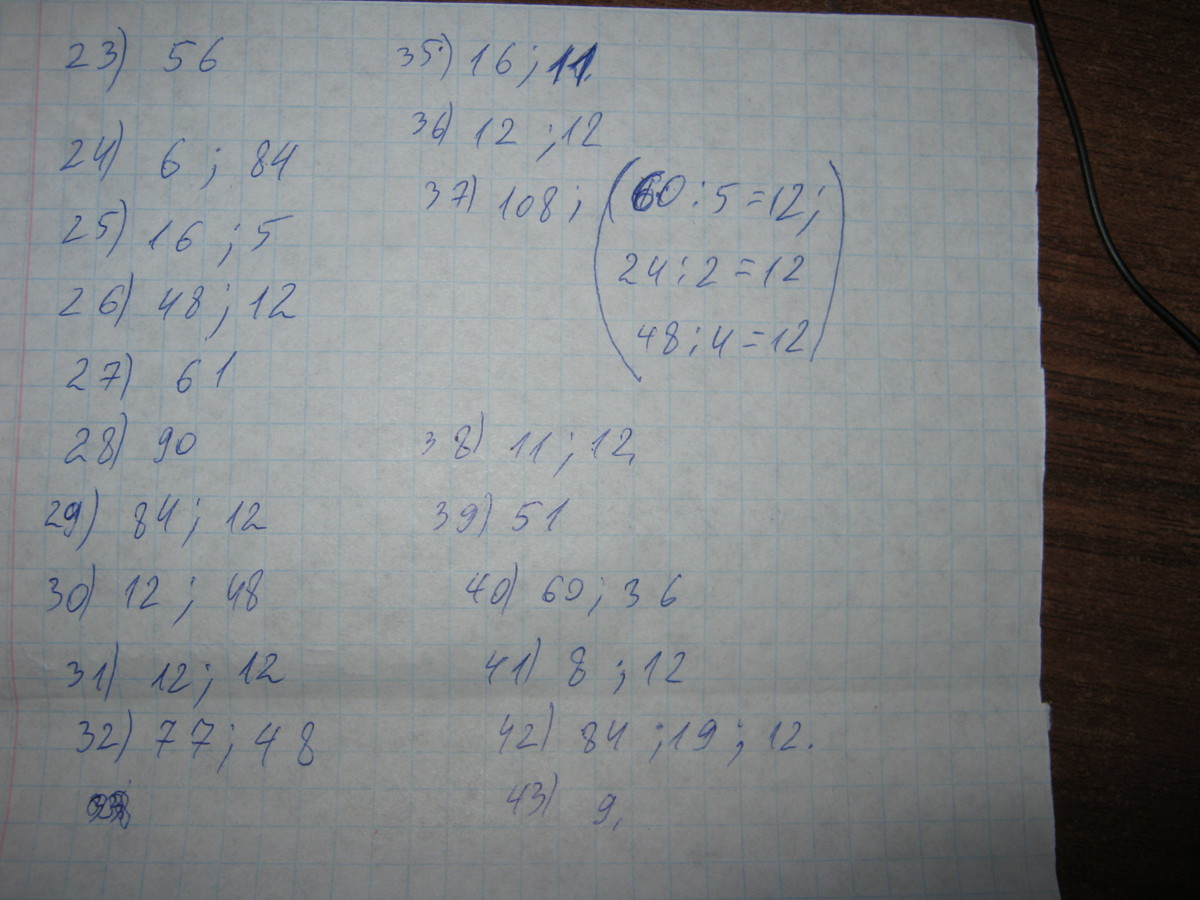 23) 56
24) 6 ; 84
25) 16 ; 5
26) 48 ; 12
27) 61
28) 90
29) 84 ; 12
30) 12 ; 48
31) 12 ; 12
32) 77 ; 48
35) 16 ; 11.
36) 12 ; 12
37) 108 ; (60 : 5 = 12 ;
24 : 2 = 12
48 : 4 = 12)
38) 11 ; 12,
39) 51
40) 60 ; 36
41) 8 ; 12
42) 84 ; 19 ; 12.
43) 9,